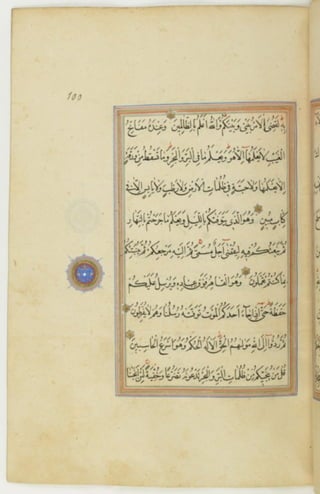 100
بِهِ لَقُضِيَ الْأَمْرُ بَيْنِي وَبَيْنَكُمْ وَاللَّهُ أَعْلَمُ بِالظَّالِمِينَ وَعِنْدَهُ مَفَاتِحُ
الْغَيْبِ لَا يَعْلَمُهَا إِلَّا هُوَ وَيَعْلَمُ مَا فِي الْبَرِّ وَالْبَحْرِ وَمَا تَسْقُطُ مِنْ وَرَقَةٍ
إِلَّا يَعْلَمُهَا وَلَا حَبَّةٍ فِي ظُلُمَاتِ الْأَرْضِ وَلَا رَطْبٍ وَلَا يَابِسٍ إِلَّا فِي
كِتَابٍ مُبِينٍ وَهُوَ الَّذِي يَتَوَفَّيكُمْ بِاللَّيْلِ وَيَعْلَمُ مَا جَرَحْتُمْ بِالنَّهَارِ
ثُمَّ يَبْعَثُكُمْ فِيهِ لِيُقْضَى أَجَلٌ مُسَمًّى ثُمَّ إِلَيْهِ مَرْجِعُكُمْ ثُمَّ يُنَبِّئُكُمْ
بِمَا كُنْتُمْ تَعْمَلُونَ وَهُوَ الْقَاهِرُ فَوْقَ عِبَادِهِ وَيُرْسِلُ عَلَيْكُمْ
حَفَظَةً حَتَّى إِذَا جَاءَ أَحَدَكُمُ الْمَوْتُ تَوَفَّتْهُ رُسُلُنَا وَهُمْ لَا يُفَرِّطُونَ
ثُمَّ رُدُّوا إِلَى اللَّهِ مَوْلَيهُمُ الْحَقِّ أَلَا لَهُ الْحُكْمُ وَهُوَ أَسْرَعُ الْحَاسِبِينَ
قُلْ مَنْ يُنَجِّيكُمْ مِنْ ظُلُمَاتِ الْبَرِّ وَالْبَحْرِ تَدْعُونَهُ تَضَرُّعًا وَخُفْيَةً لَئِنْ أَنْجَيْنَا